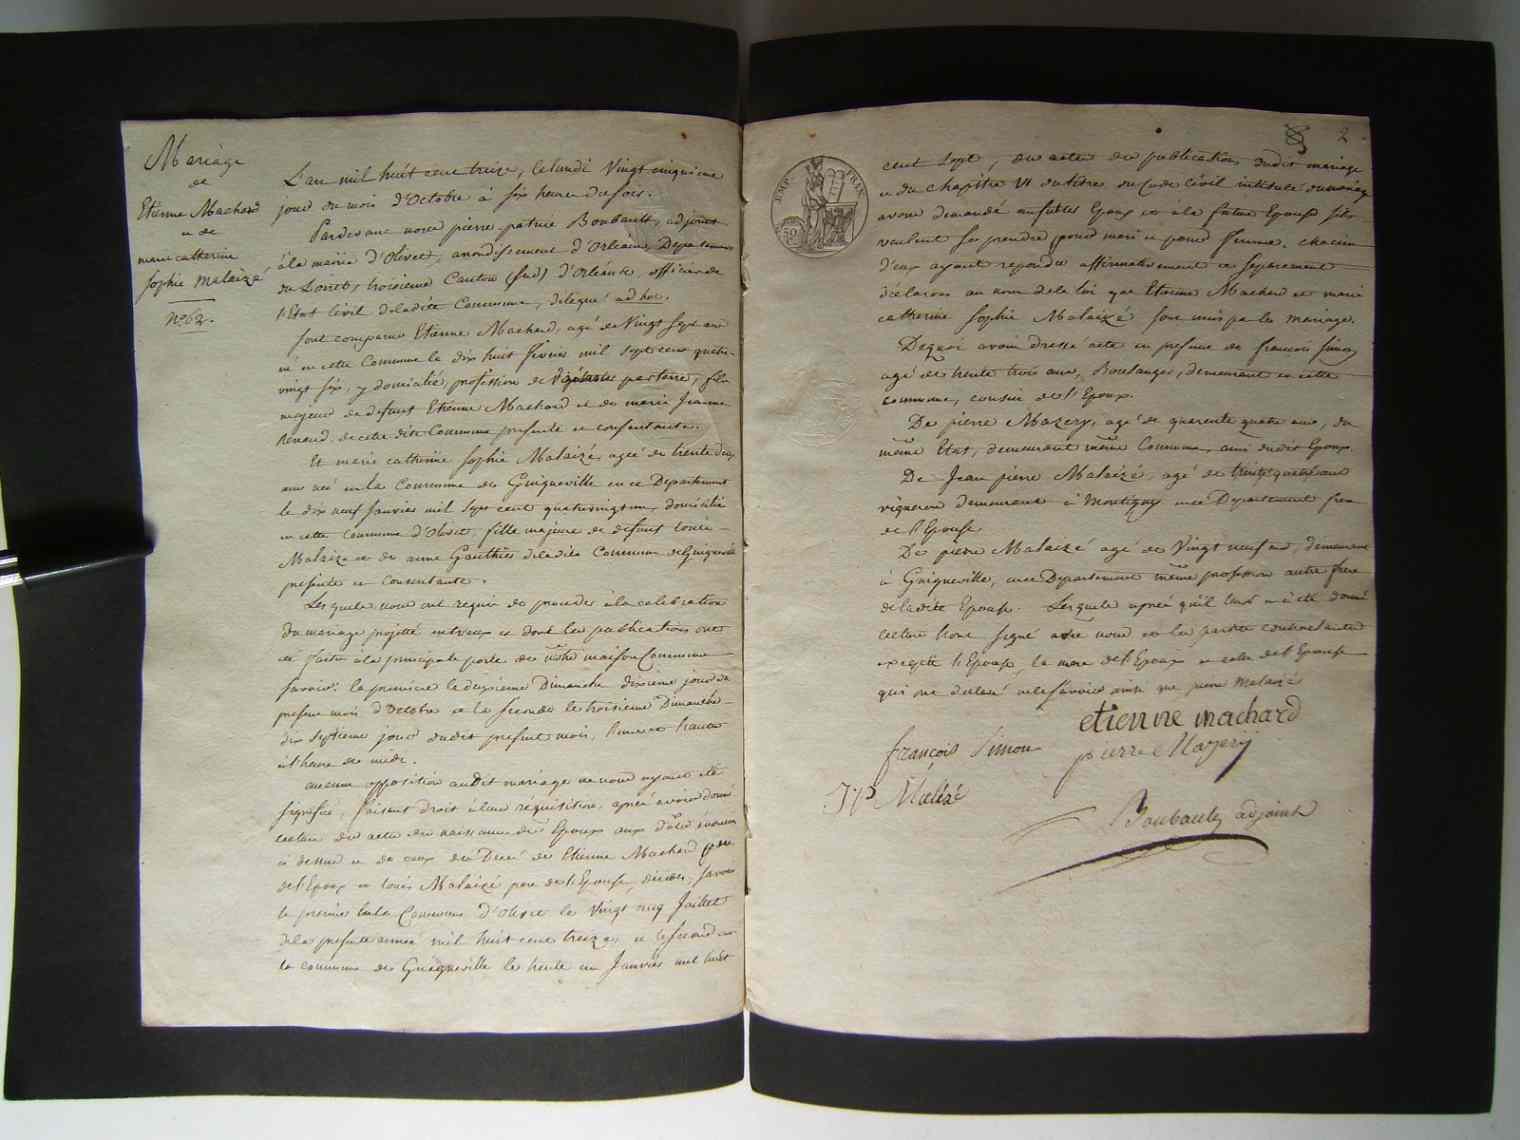 Mariage
de
Etienne Machard
et de
marie catherine
Sophie Malaizé
N° 62.
L'an mil huit cent treize, le lundi Vingt cinquieme
jour du mois d'Octobre à six heures du soir.
Pardevant nous pierre patrice Boubault, adjoint
à la mairie d'Olivet, arrondissement d'Orléans, Departement
du Loiret, troisieme Canton (sud) d'Orléans, officier de
l'Etat Civil de ladite Commune, délégué ad hoc.
Sont comparus Etienne Machard, agé de Vingt sept ans
né en cette Commune le dix huit fevrier mil sept cent quatre
vingt six, y domicilié, profession de parterre, fils
majeur de defunt Etienne Machard et de marie Jeanne
Renaud, de cette dite Commune presente et consentante.
Et marie catherine Sophie Malaizé, agée de trente deux
ans née en la Commune de Guigneville en ce Departement
le dix neuf Janvier mil sept cent quatrevingt un, domiciliée
en cette Commune d'Olivet, fille majeure de defunt Louis
Malaizé et de anne Gauthier de ladite Commune de Guigneville
presente et consentante.
Lesquels nous ont requis de proceder à la celebration
du mariage projetté entr'eux et dont les publications ont
été faites à la principale porte de notre maison Commune
Savoir: la premiere le deuxieme Dimanche dixieme jour du
present mois d'Octobre et la seconde le troisieme Dimanche
dix septieme jour dudit present mois, l'une et l'autre
à l'heure de midi.
aucune opposition audit mariage ne nous ayant été
signifiée, faisant droit à leur réquisition, après avoir donné
lecture des actes de naissance des Epoux aux dates énoncées
ci dessus et de ceux de Décès de Etienne Machard pere
de l'Epoux et Louis Malaizé pere de l'Epouse, décédés, savoir
le premier en la Commune d'Olivet le Vingt cinq Juillet
de la presente année mil huit cent treize, et le second en
la commune de Guigneville le trente un Janvier mil huit
2
EMP. FRAN.
50
cent sept, des actes de publications dudit mariage
et du chapitre VI du titre du Code Civil intitulé du mariage
avons demandé au futur Epoux et à la future Epouse s'ils
veulent se prendre pour mari et pour femme. chacun
d'eux ayant repondu affirmativement et separement
déclarons au nom de la loi que Etienne Machard et marie
catherine Sophie Malaizé sont unis par le mariage.
De quoi avons dressé acte en presence de françois Simon
agé de trente trois ans, Boulanger, demeurant en cette
commune, cousin de l'Epoux.
De pierre Mazery, agé de quarente quatre ans, du
même Etat, demeurant même Commune, ami dudit Epoux.
De Jean pierre Malaizé, agé de trente quatre ans
vigneron demeurant à Montigny en ce Departement frere
de l'Epouse
De pierre Malaizé agé de Vingt neuf ans, demeurant
à Guigneville, en ce Departement même profession autre frere
de ladite Epouse. Lesquels après qu'il leur en a été donné
lecture l'ont signé avec nous et les parties contractantes
excepté l'Epouse, la mere de l'Epoux et celle de l'Epouse
qui ont declaré ne le savoir ainsi que pierre Malaizé
etienne machard
françois Simon
pierre Mazerÿ
J p Malézé
Boubault adjoint